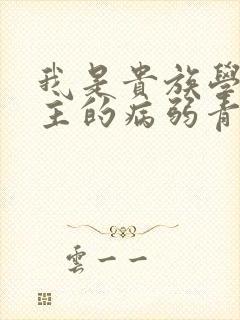 我是貴族學
主的病弱青
雲一一